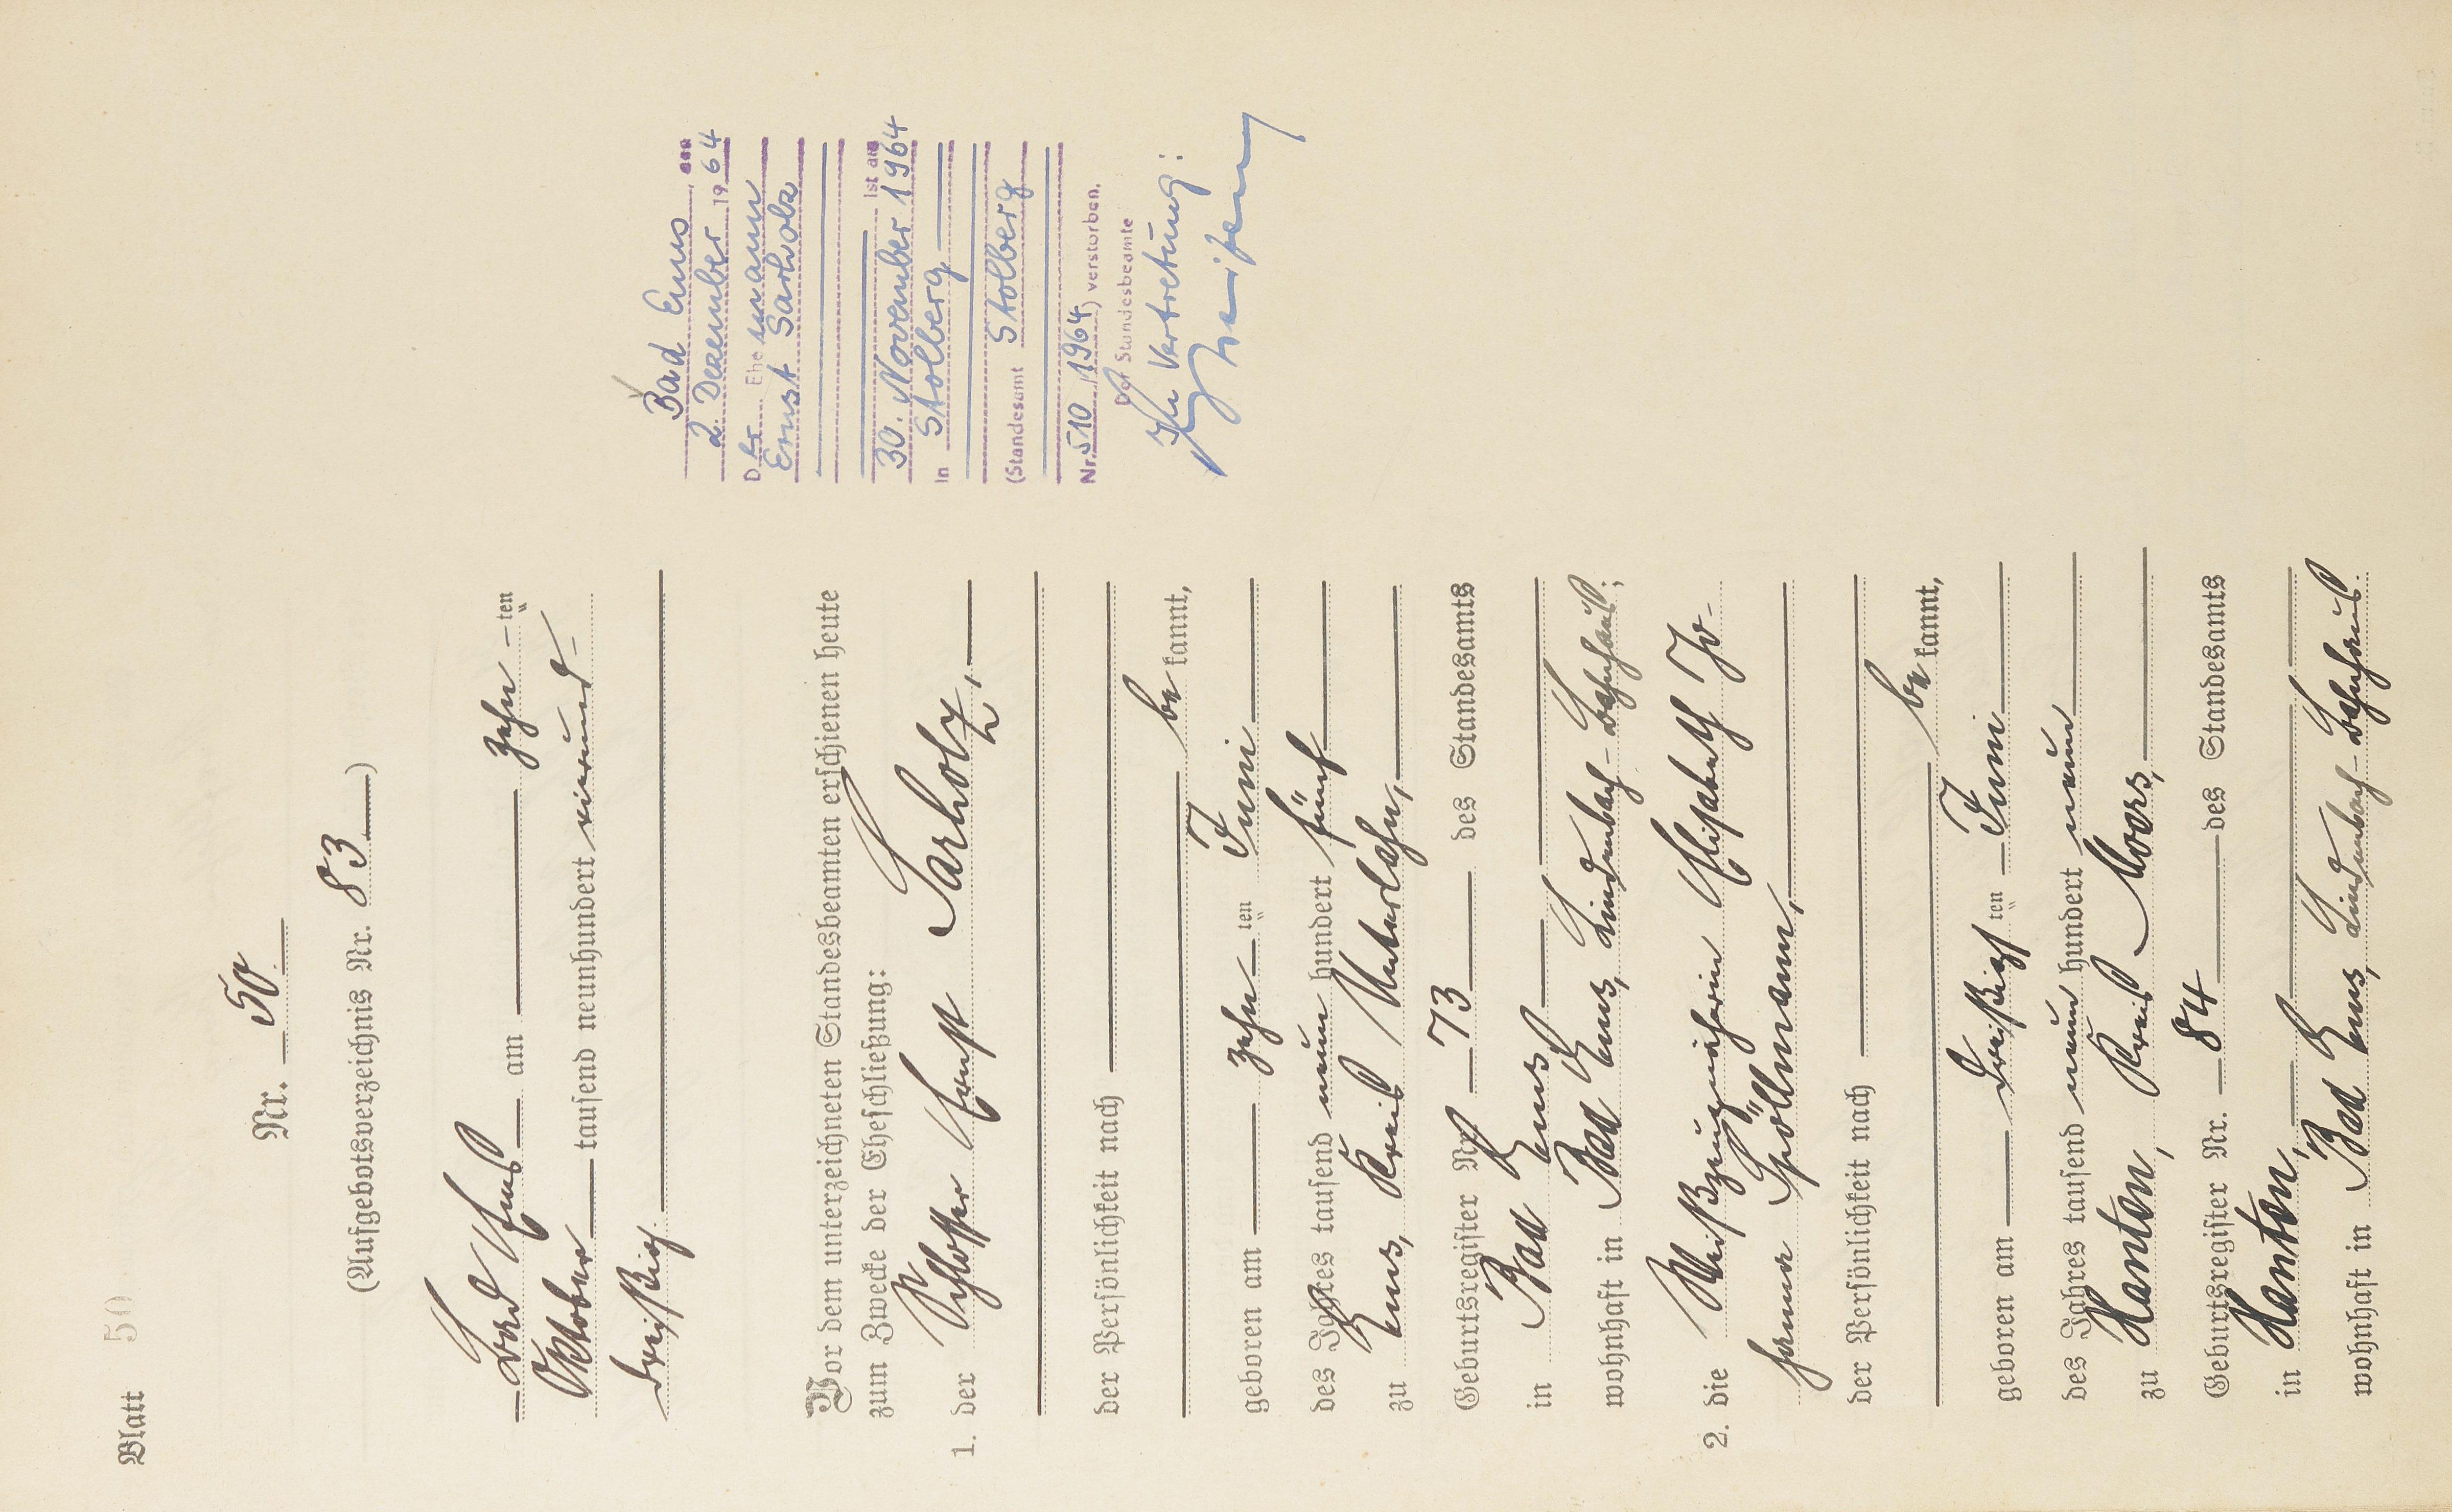 Blatt 50
Nr. 50
(Aufgebotsverzeichnis Nr. 83)
Bad Ems am zehn ten
Oktober tausend neunhundert vierund-
dreißig.
Vor dem unterzeichneten Standesbeamten erschienen heute
zum Zwecke der Eheschließung:
1. der Schlosser Ernst Sarholz,
der Persönlichkeit nach
be kannt,
geboren am zehn ten Juni
des Jahres tausend neun hundert fünf
zu Ems, Kreis Unterlahn,
Geburtsregister Nr. 73 des Standesamts
in Bad Ems
wohnhaft in Bad Ems, Lindenbach-Bahnhaus;
2. die Weißzeugnäherin Elisabeth Jo-
hanna Spöllmann,
der Persönlichkeit nach
be kannt,
geboren am dreißigsten Juni
des Jahres tausend neun hundert neun
zu Xanten, Kreis Moers,
Geburtsregister Nr. 84 des Standesamts
in Xanten,
wohnhaft in Bad Ems, Lindenbach-Bahnhaus.
Bad Ems, den
2. Dezember 1964
Der Ehemann
Ernst Sarholz
ist am
30. November 1964
In Stolberg
(Standesamt Stolberg
Nr. 510/1964) verstorben.
Der Standesbeamte
In Vertretung: